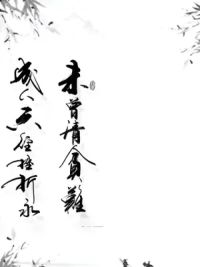 未曾清貧難
成人不經挫折永